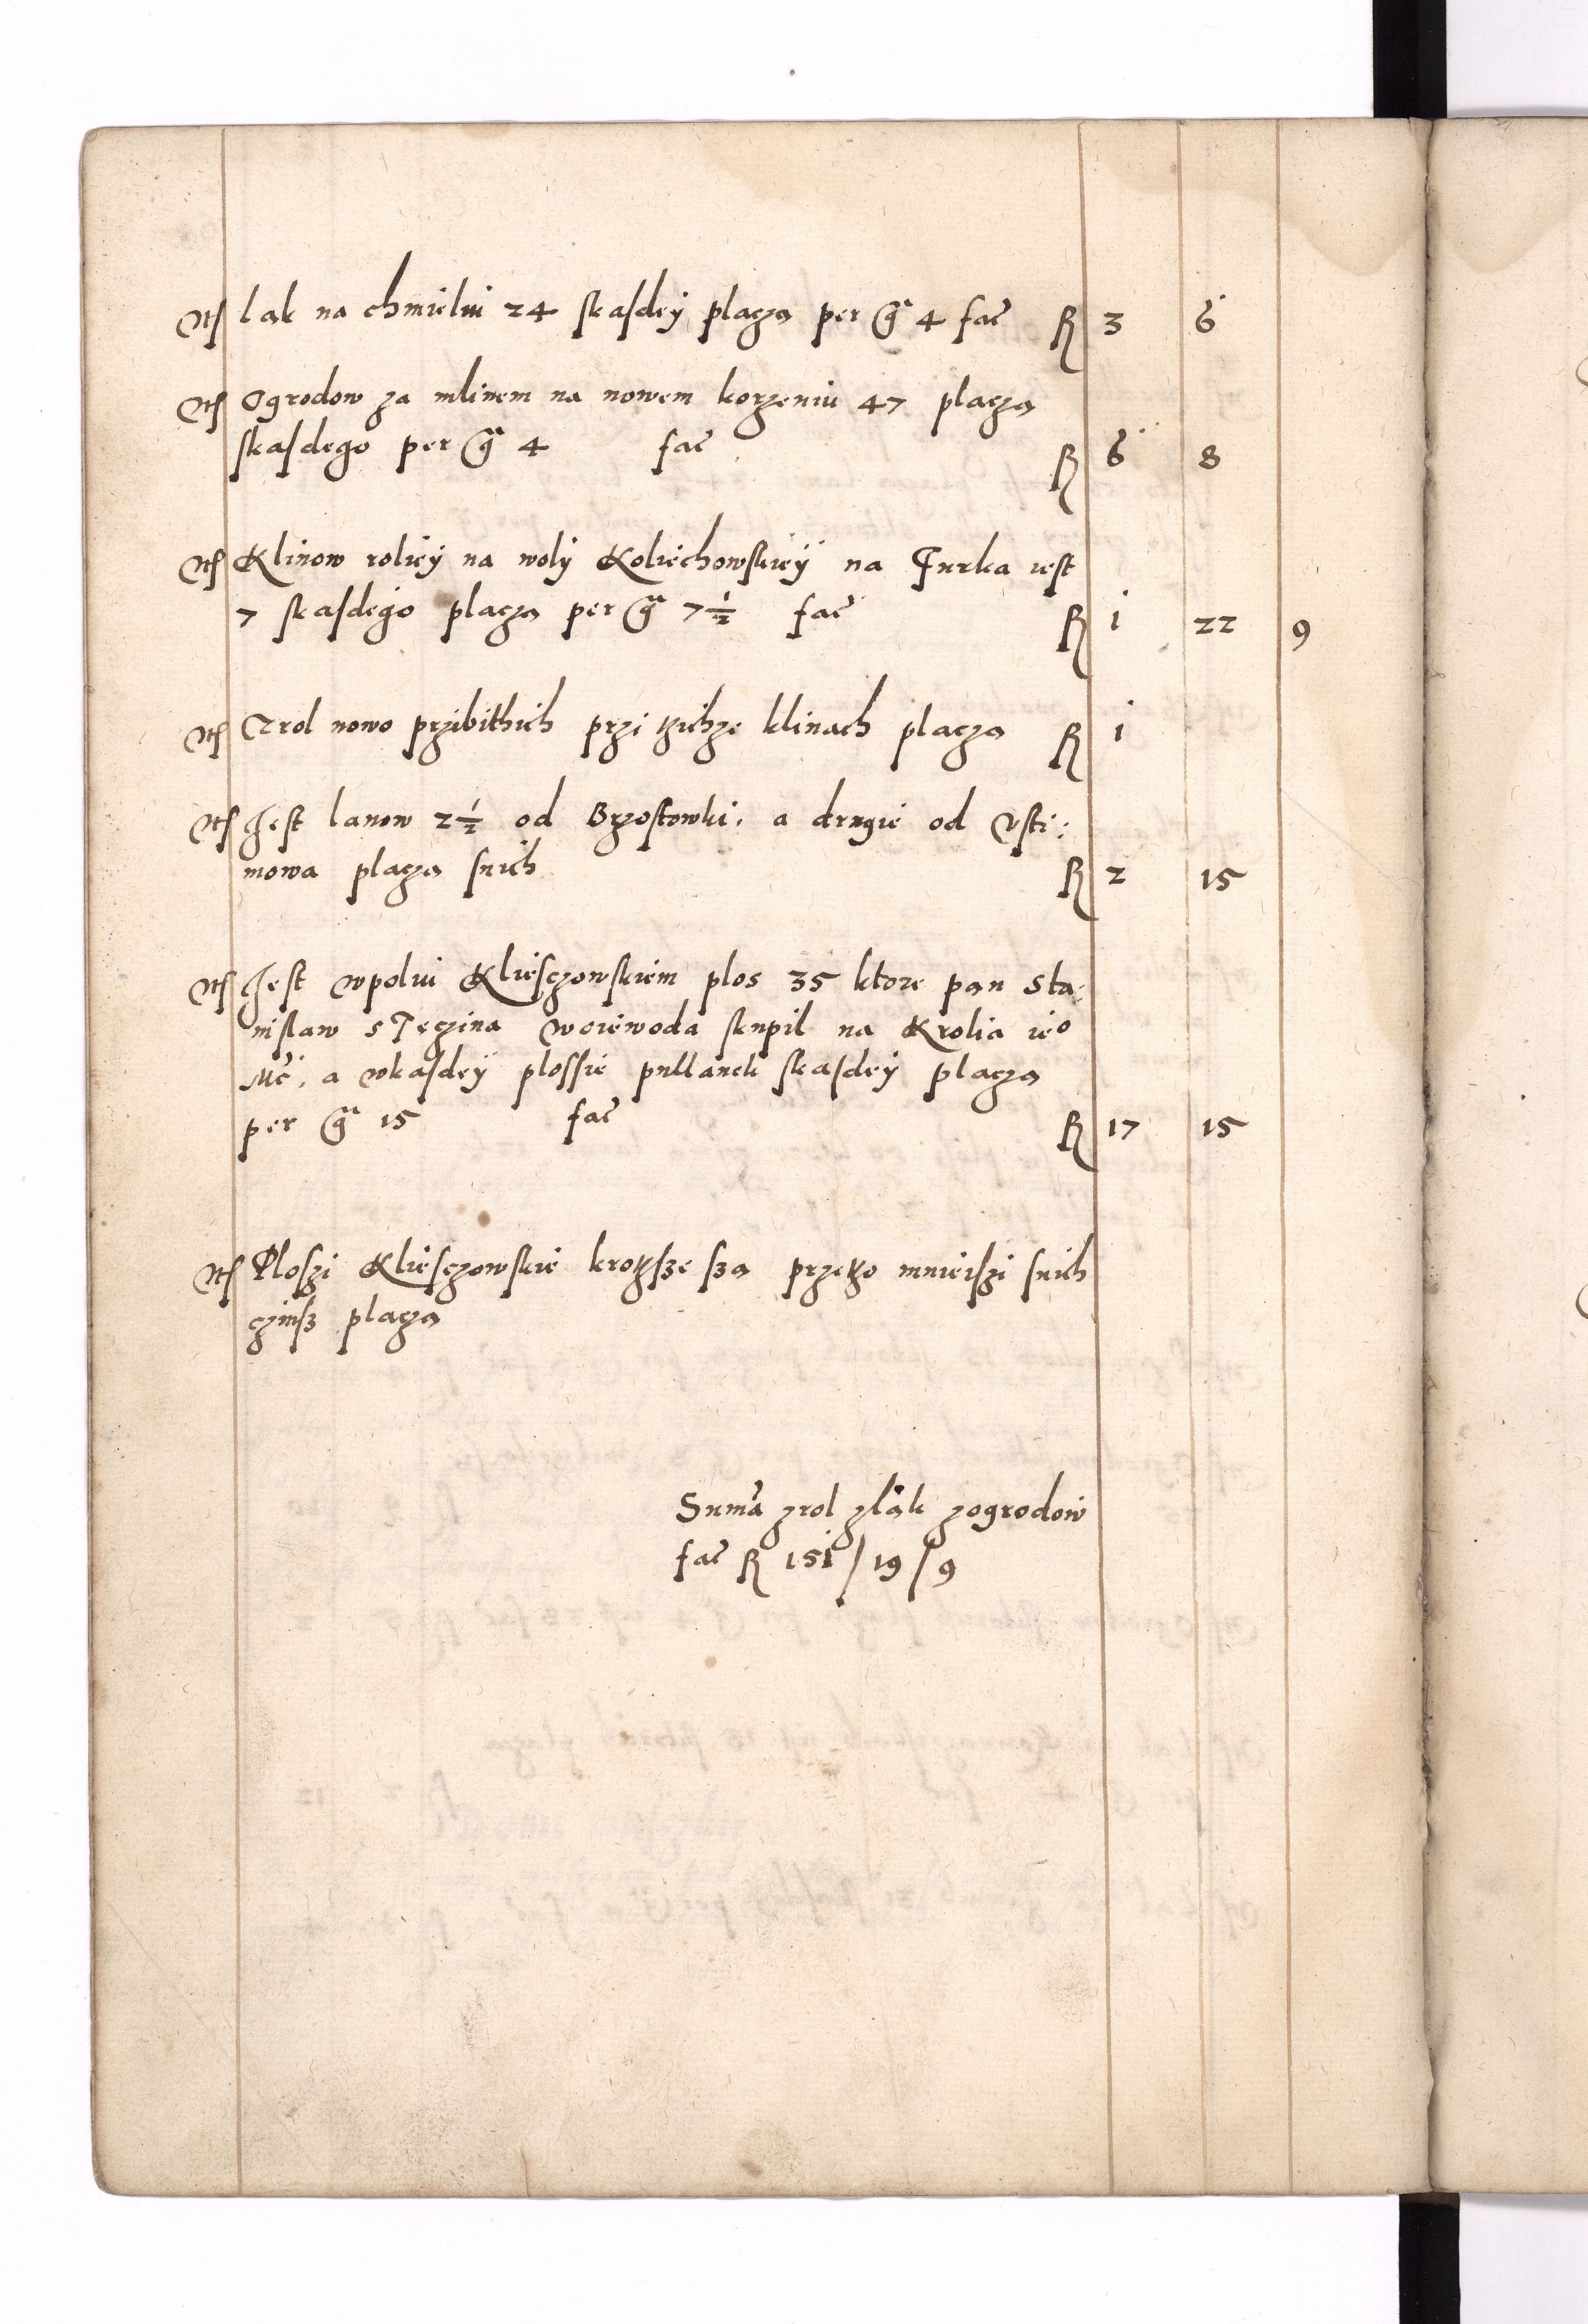 Itm lak na chmieliu 24 skasdey placza per gr 4 fac fl 3 6
Itm Ogrodow za mlinem na nowem korzeniu 47 placza
skasdego per gr 4 fac fl 6 8
Itm Klinow roliey na woly Koliechowskiey na Gurka iest
7 skasdego placza per gr 7½ fac fl 1 22 9
Itm Zrol nowo przibithich przi tzichze klinach placza fl 1
Itm Jest lanow 2½ od Brzostowki, a drugie od Vsti:
mowa placza snich fl 2 15
Itm Jest wpoliu Kliesczowskiem plos 35 ktore pan Sta:
nislaw sTeczina woiewoda skupil na Krolia ieo
Mc, a wkasdey plossie pullanek skasdey placza
per gr 15 fac fl 17 15
Itm Ploszi Kliesczowskie krotzsze sza przetzo mnieiszi snich
czinsz placza
Suma zrol zlak zogrodow
fac fl 151 / 19 / 9